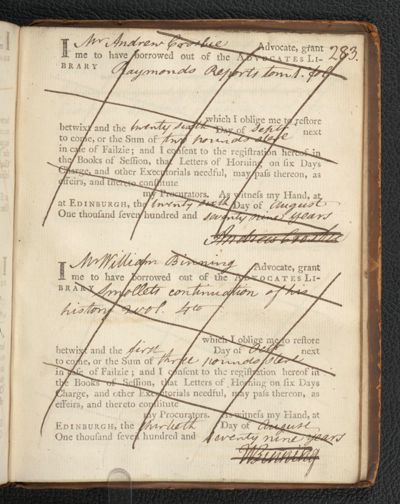 283.
I Mr Andrew Crosbie Advocate, grant
me to have borrowed out of the ADVOCATES LI-
BRARY Raymonds Reports tom. 1. fol
which I oblige me to restore
betwixt and the twenty sixth Day of Septr next
to come, or the Sum of two pounds stere
in case of Failzie; and I consent to the registration hereof in
the Books of Session, that Letters of Horning on six Days
Charge, and other Executorials needful, may pass thereon, as
effeirs, and thereto constitute
my Procurators. As witness my Hand, at
at EDINBURGH, the twenty sixth Day of August
One thousand seven hundred and seventy nine years
Andrew Crosbie
I Mr William Binning Advocate, grant
me to have borrowed out of the ADVOCATES LI-
BRARY Smollets continuation of his
history 2 vol. 4to
which I oblige me to restore
betwixt and the first Day of Octr next
to come, or the Sum of three pounds ster
in case of Failzie; and I consent to the registration hereof in
the Books of Session, that Letters of Horning on six Days
Charge, and other Executorials needful, may pass thereon, as
effeirs, and thereto constitute
my Procurators. As witness my Hand, at
EDINBURGH, the thirtieth Day of August
One thousand seven hundred and seventy nine years
WBinning